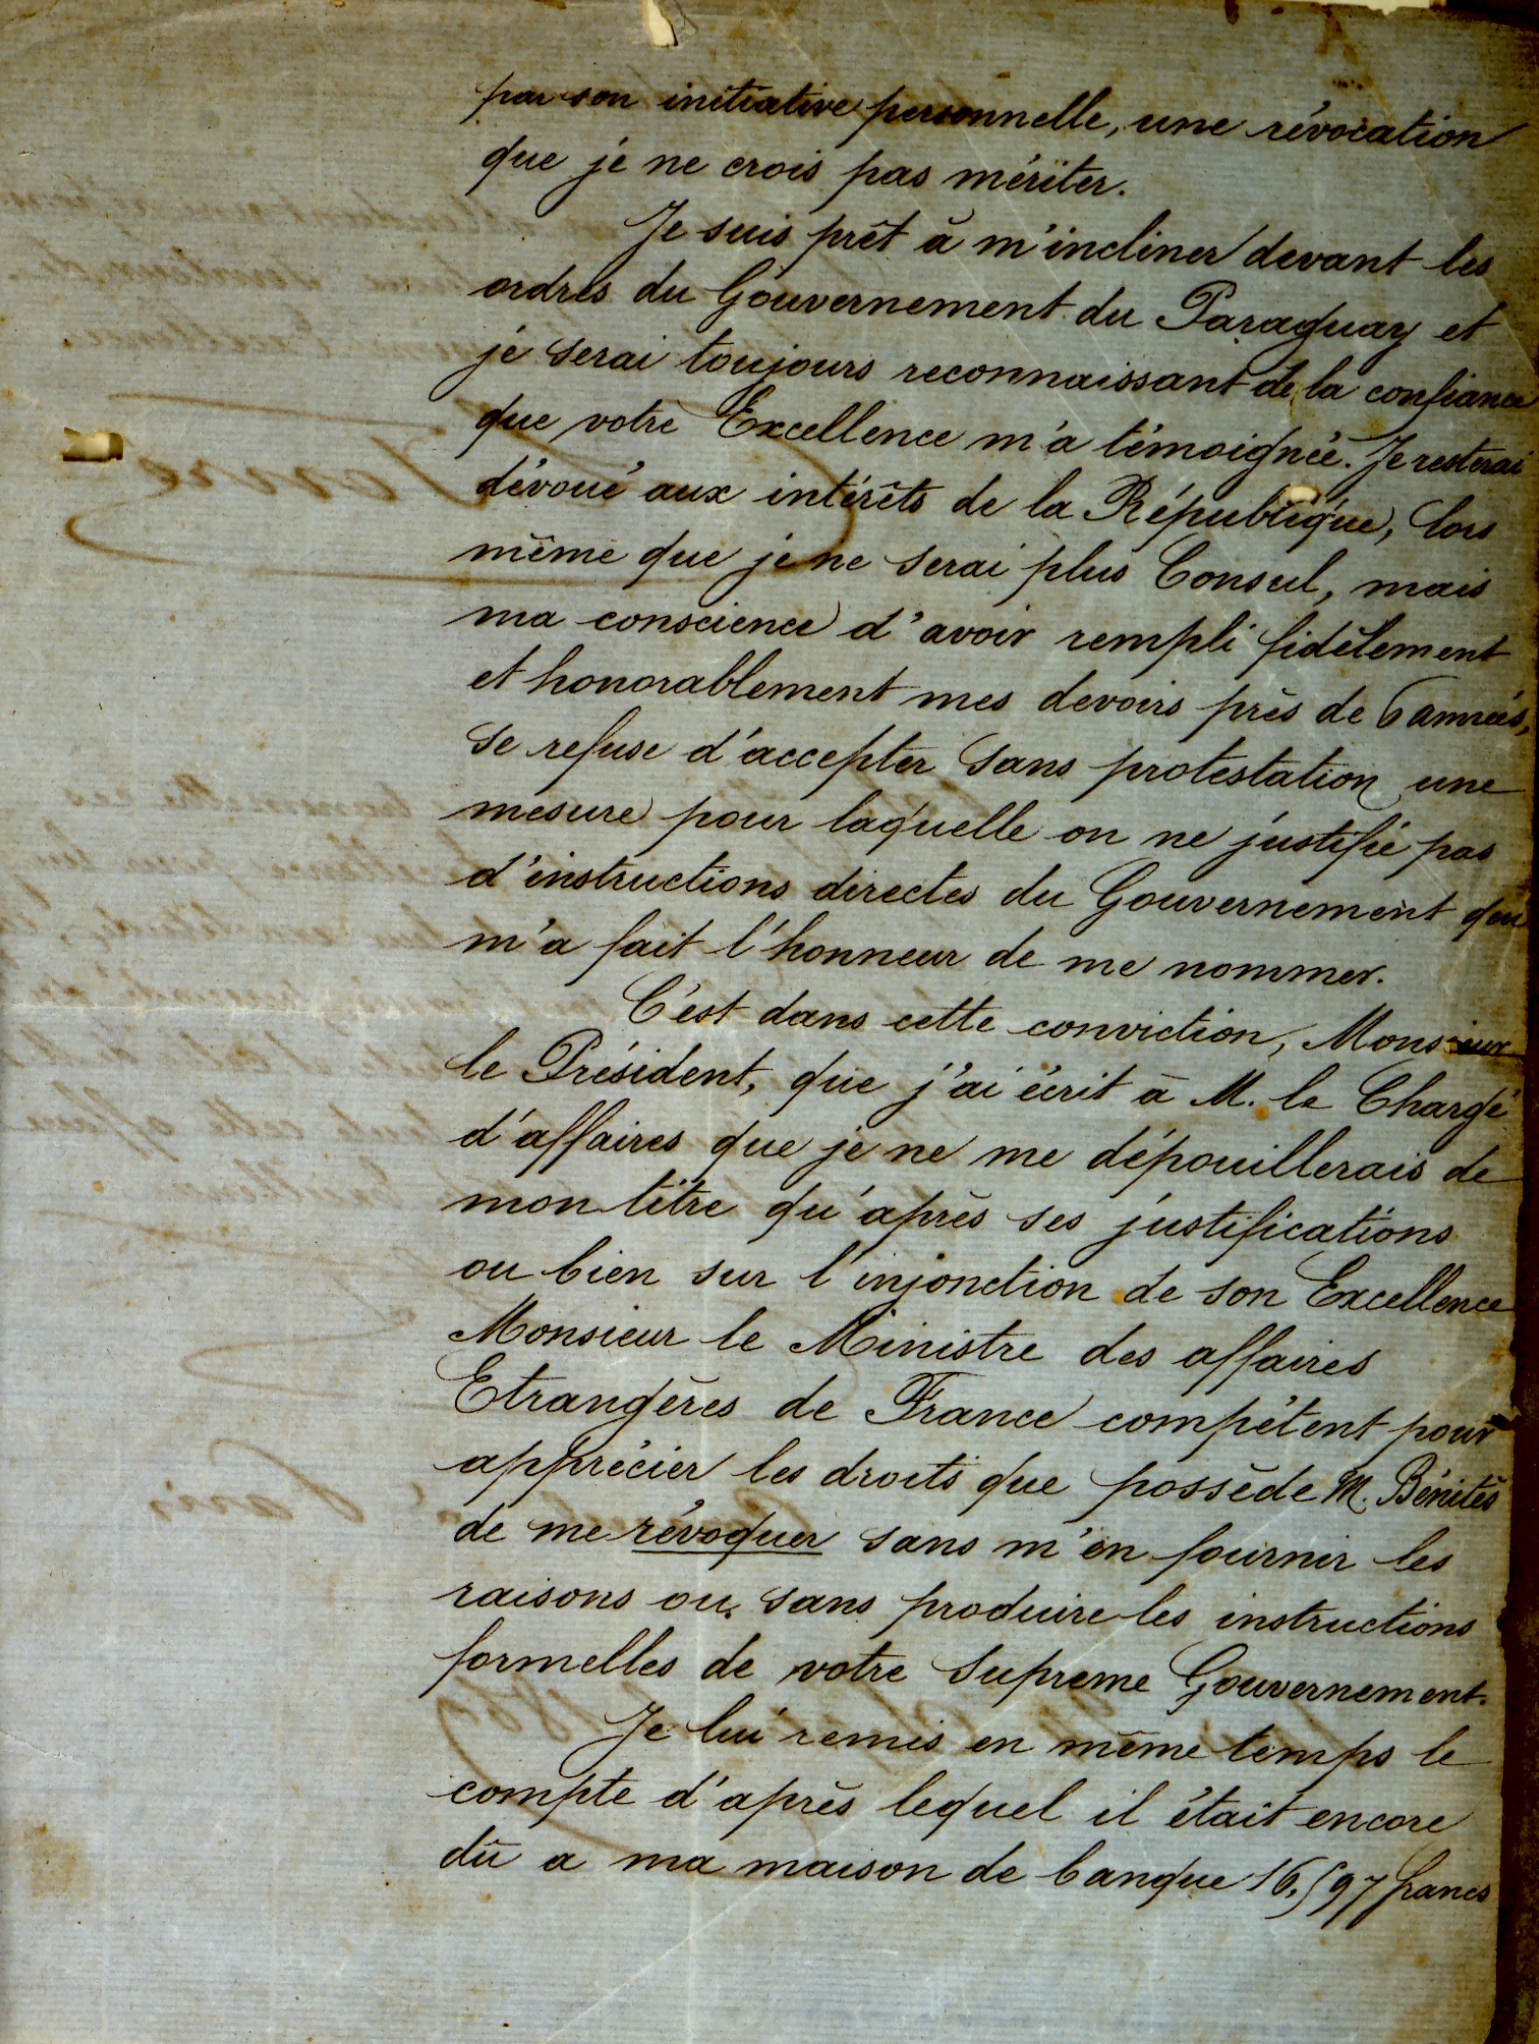 par son initiative personnelle, une révocation
que je ne crois pas mériter.
Je suis prêt à m'incliner devant les
ordres du Gouvernement du Paraguay et
je serai toujours reconnaissant de la confiance
que votre Excellence m'a témoignée. Je resterai
dévoué aux intérêts de la République, lors
même que je ne serai plus Consul, mais
ma conscience d'avoir rempli fidèlement
et honorablement mes devoirs près de 6 années,
se refuse d'accepter sans protestation une
mesure pour laquelle on ne justifie pas
d'instructions directes du Gouvernement qui
m'a fait l'honneur de me nommer.
C'est dans cette conviction, Monsieur
le Président, que j'ai écrit à M. le Chargé
d'affaires que je ne me dépouillerais de
mon titre qu'après ses justifications
ou bien sur l'injonction de son Excellence
Monsieur le Ministre des affaires
Etrangères de France compétent pour
apprécier les droits que possède M. Bénitès
de me révoquer sans m'en fournir les
raisons ou sans produire les instructions
formelles de votre Supreme Gouvernement.
Je lui remis en même temps le
compte d'après lequel il était encore
dû a ma maison de banque 16,597 francs